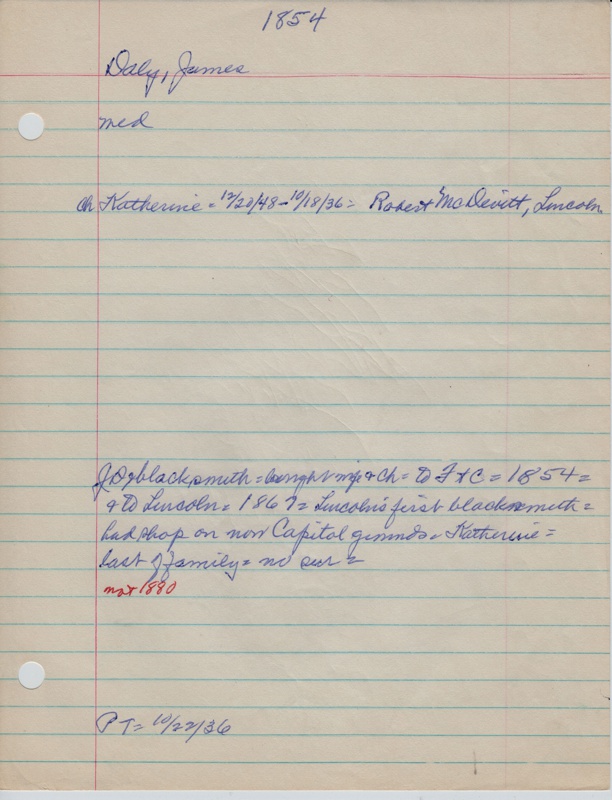 1854
Daly, James
med
ch Katherine = 12/20/48 - 10/18/36 = Robert McDevitt, Lincoln
J D = blacksmith = brought wife & ch = to F & C = 1854 =
& to Lincoln = 1867 = Lincoln's first blacksmith =
had shop on now Capitol grounds = Katherine =
last of family = no sur =
not 1880
P T = 10/22/36